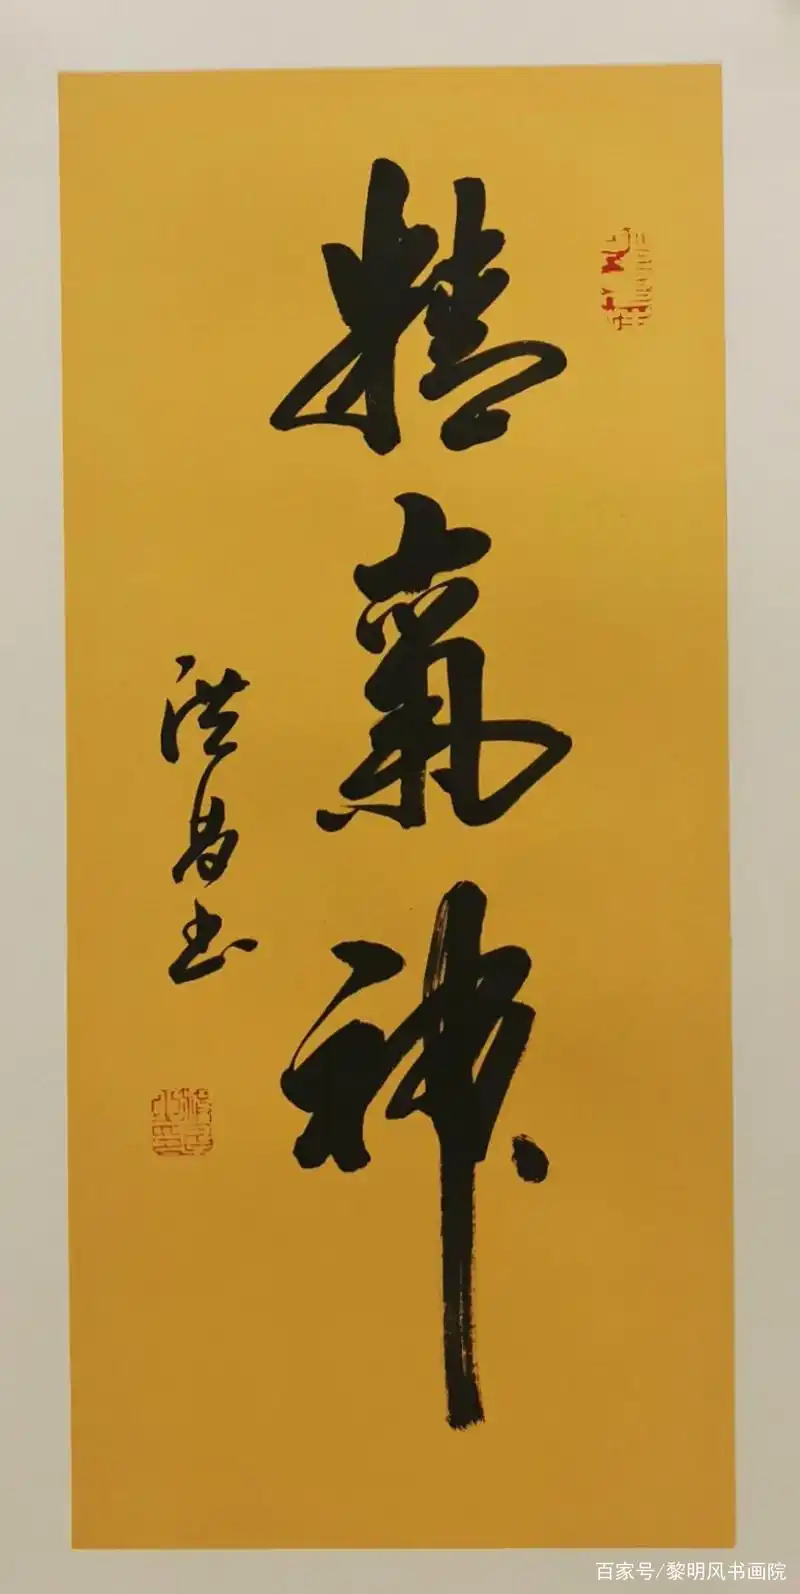 精氣神
洪昌书
百家号/黎明风书画院